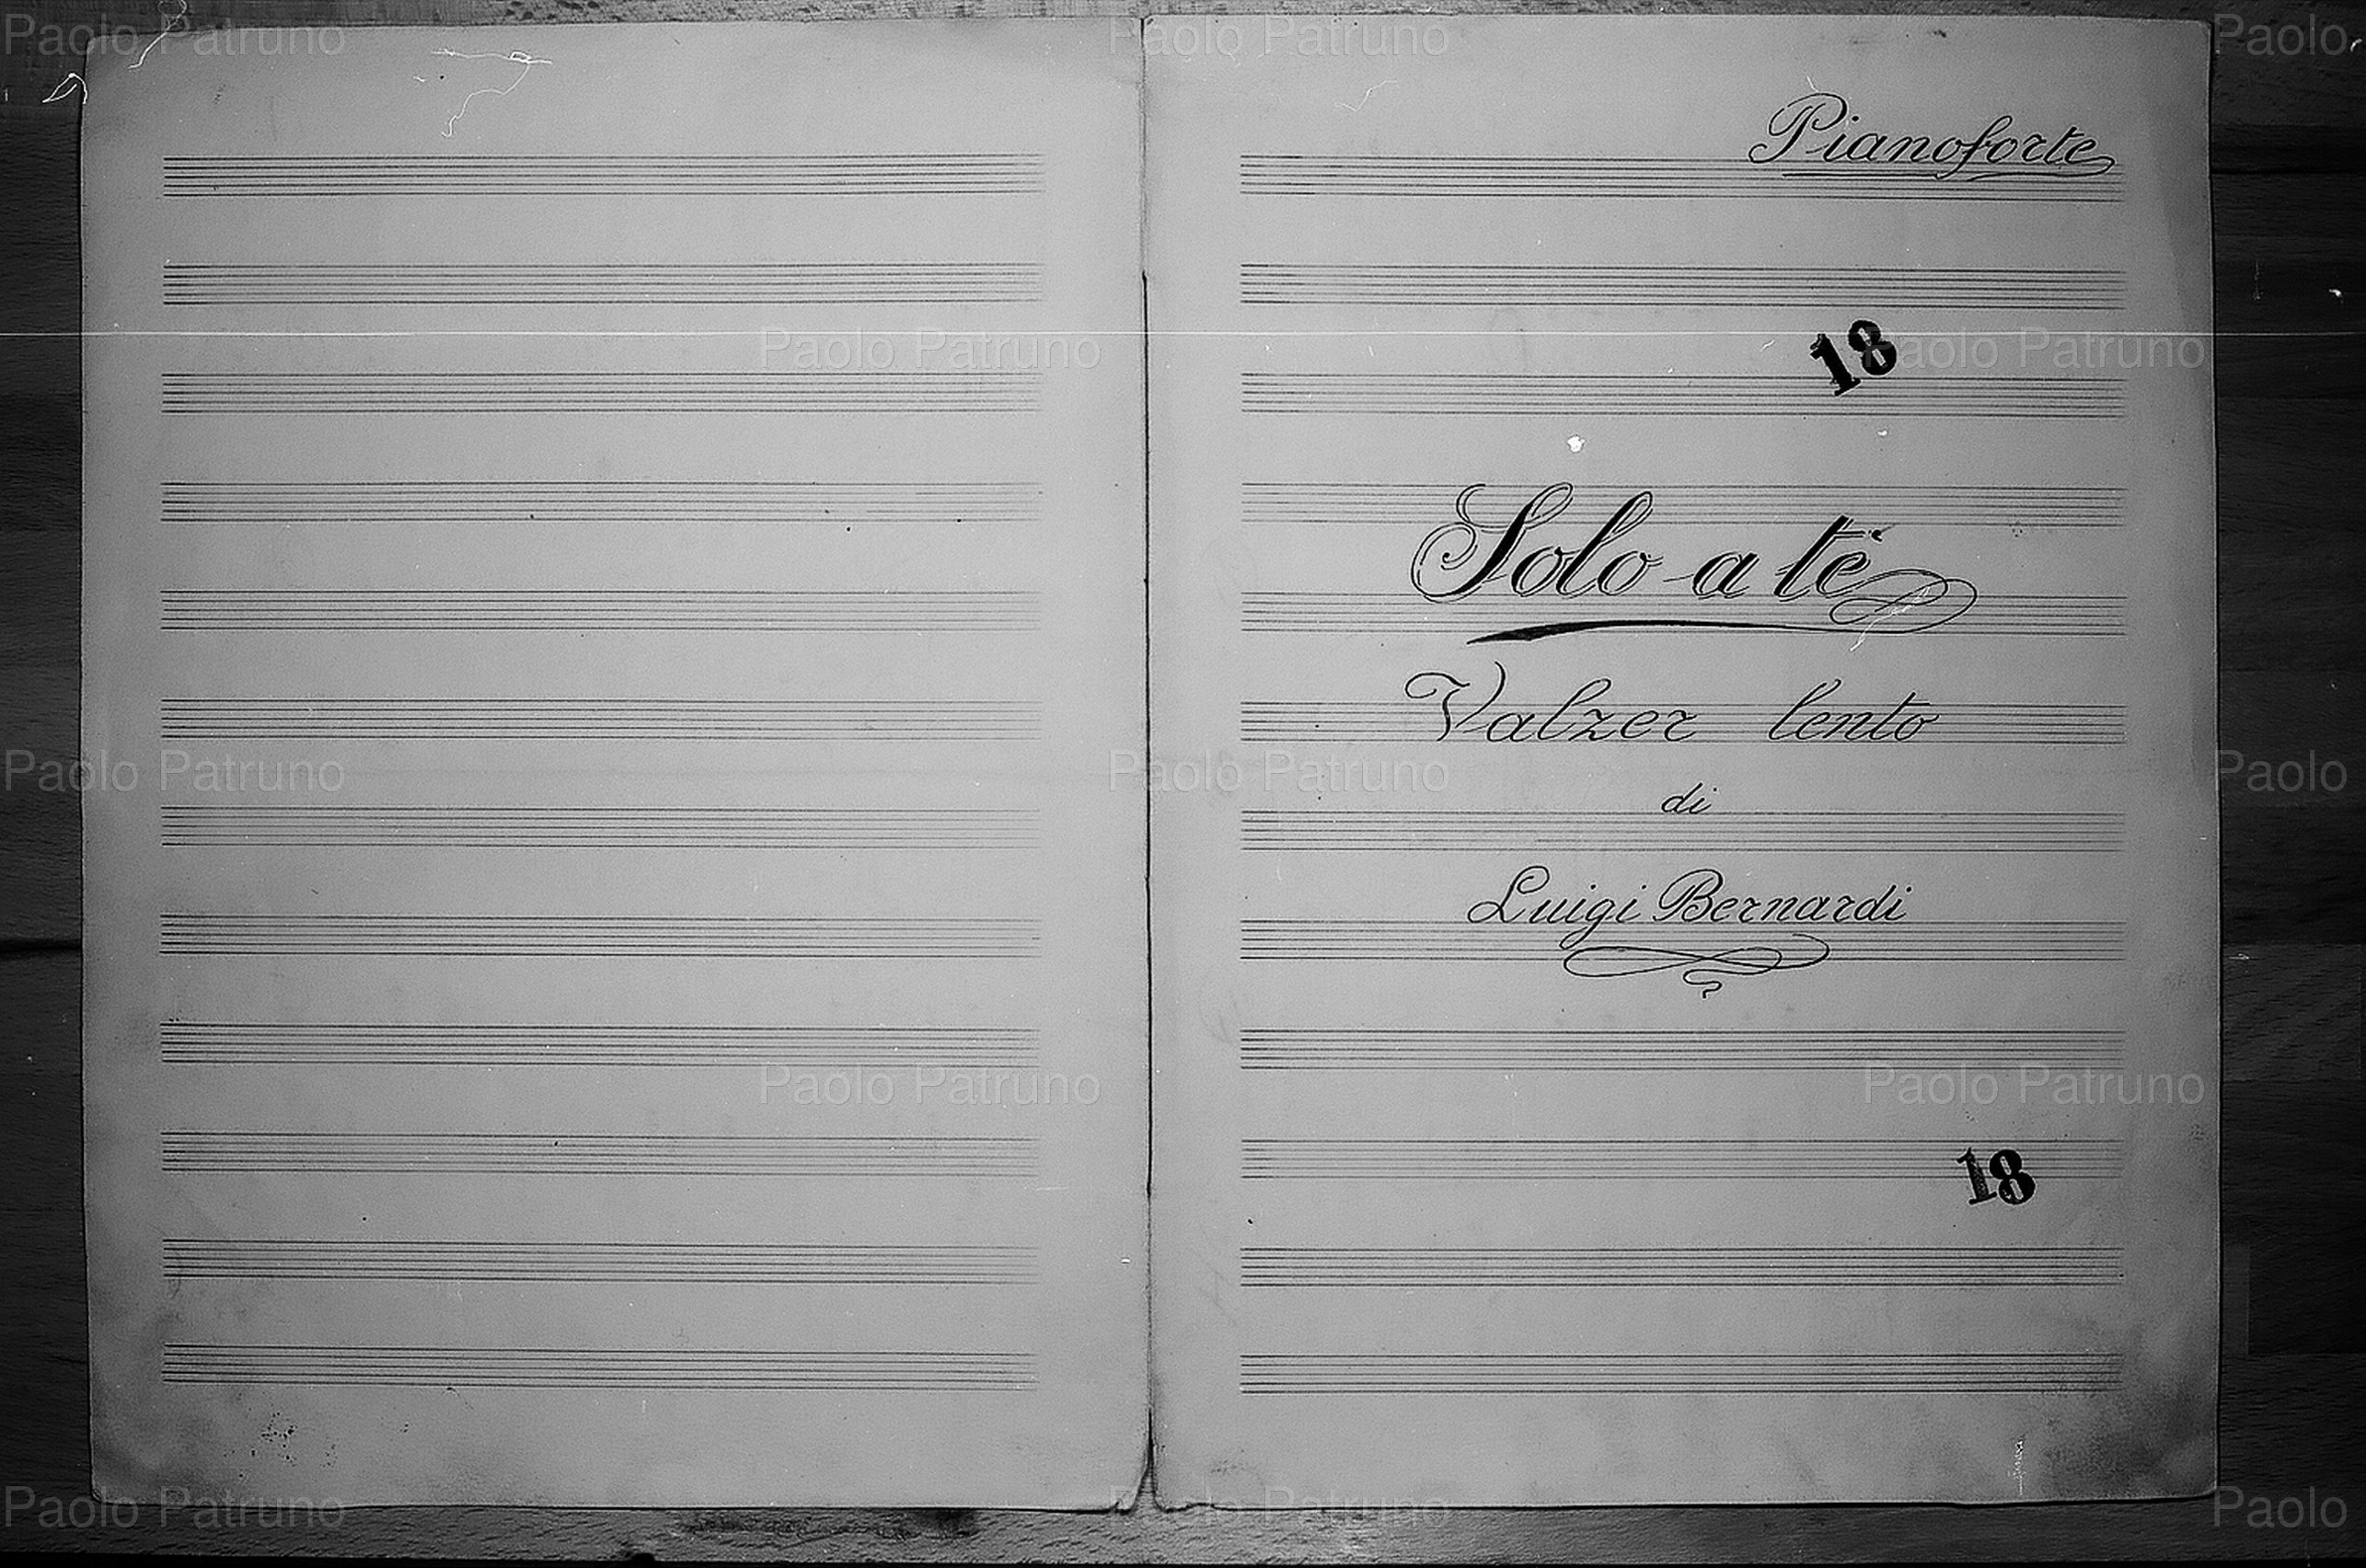 Paolo Patruno Paolo Patruno Paolo
Pianoforte
18
Paolo Patruno Paolo Patruno
Solo a te
Valzer lento
Paolo Patruno Paolo Patruno Paolo
di
Luigi Bernardi
Paolo Patruno Paolo Patruno
18
Paolo Patruno Paolo Patruno Paolo